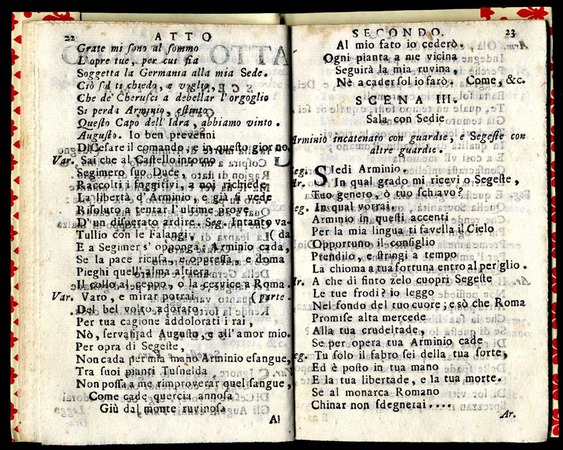 22 ATTO
Grate mi sono al sommo
L'opre tue, per cui sia
Soggetta la Germania alla mia Sede.
Ciò sol ti chiedo, e voglio,
Che de' Cherusci a debellar l'orgoglio
Si perda Arminio, estinto
Questo Capo dell'Idra, abbiamo vinto.
Augusto. Io ben prevenni
Di Cesare il comando, e in questo giorno
Var. Sai che al Castello intorno
Segimero suo Duce,
Raccolti i fuggitivi, a noi richiede
La libertà d'Arminio, e già si vede
Risoluto a tentar l'ultime prove
D'un disperato ardire. Seg. Intanto va
Tullio con le Falangi
E a Segimer s'opponga; Arminio cada,
Se la pace ricusa, e oppressa, e doma
Pieghi quell'alma altiera
Il collo al ceppo, o la cervice a Roma.
Var. Varo, e mirar potrai (parte.
Del bel volto adorato
Per tua cagione addolorati i rai,
Nò, servasi ad Augusto, e all'amor mio.
Per opra di Segeste,
Non cada per mia mano Arminio esangue,
Tra suoi pianti Tusnelda
Non possa a me rimproverar quel sangue,
Come cade quercia annosa
Giù dal monte ruvinosa
Al
SECONDO. 23
Al mio fato io cederò.
Ogni pianta a me vicina
Seguirà la mia ruvina,
Nè a cader sol io sarò. Come, &c.
SCENA III.
Sala con Sedie
Arminio incatenato con guardie, e Segeste con
altre guardie.
Seg. Siedi Arminio.
Ar. In qual grado mi ricevi o Segeste,
Tuo genero, ò tuo schiavo?
Seg. In qual vorrai.
Arminio in questi accenti
Per la mia lingua ti favella il Cielo
Opportuno il consiglio
Prendilo, e stringi a tempo
La chioma a tua fortuna entro al periglio.
Ar. A che di finto zelo cuopri Segeste
Le tue frodi? io leggo
Nel fondo del tuo cuore; e sò che Roma
Promise alta mercede
Alla tua crudeltade,
Se per opera tua Arminio cade
Seg. Tu solo il fabro sei della tua sorte,
Ed è posto in tua mano
E la tua libertade, e la tua morte.
Se al monarca Romano
Chinar non sdegnerai....
Ar.